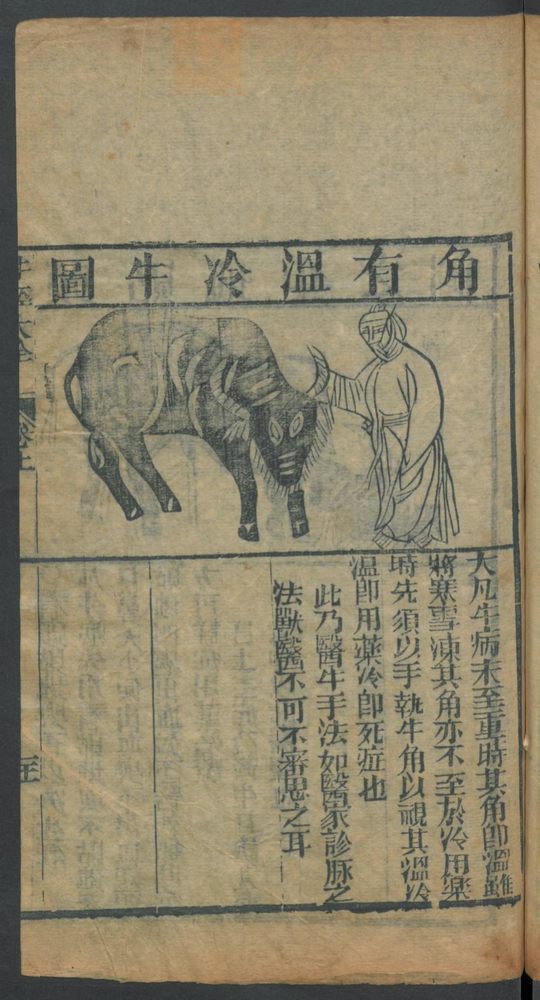 角有溫冷牛圖
大凡牛病未至重時其角卽溫雖
將寒雪凍其角亦不至於冷用藥
時先須以手執牛角以視其溫冷
溫卽用藥冷卽死症也
此乃醫牛手法如醫家診脉之
法獸醫不可不審思之耳